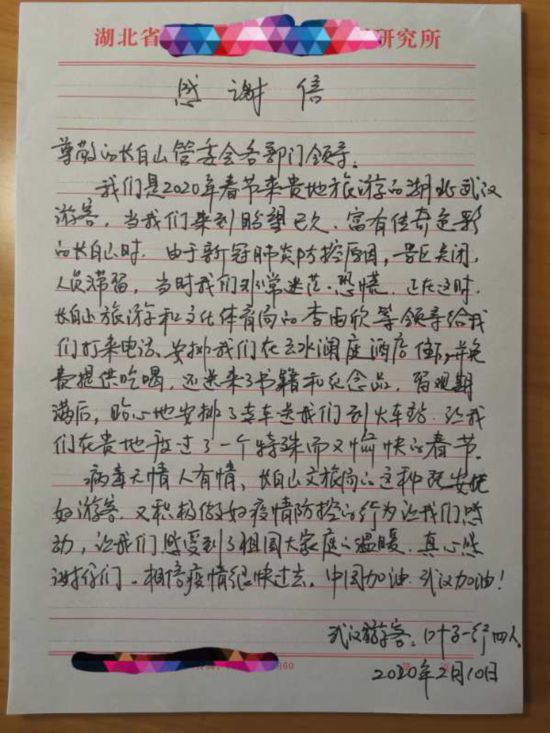 湖北省 研究所
感谢信
尊敬的长白山管委会各部门领导:
我们是2020年春节来贵地旅游的湖北武汉
游客,当我们来到盼望已久、富有传奇色彩
的长白山时,由于新冠肺炎防控原因,景区关闭,
人员滞留,当时我们非常迷茫、恐慌。正在这时,
长白山旅游和文化体育局的李雨欣等领导给我
们打来电话、安排我们在云水涧庭酒店住下,并免
费提供吃喝,还送来了书籍和纪念品,留观期
满后,贴心地安排了专车送我们到火车站。让我
们在贵地度过了一个特殊而又愉快的春节。
病毒无情人有情,长白山文旅局的这种既安抚
好游客、又积极做好疫情防控的行为让我们感
动,让我们感受到了祖国大家庭的温暖。真心感
谢你们。相信疫情很快过去。中国加油 武汉加油!
武汉游客: 叶 一行四人
2020年2月10日
60